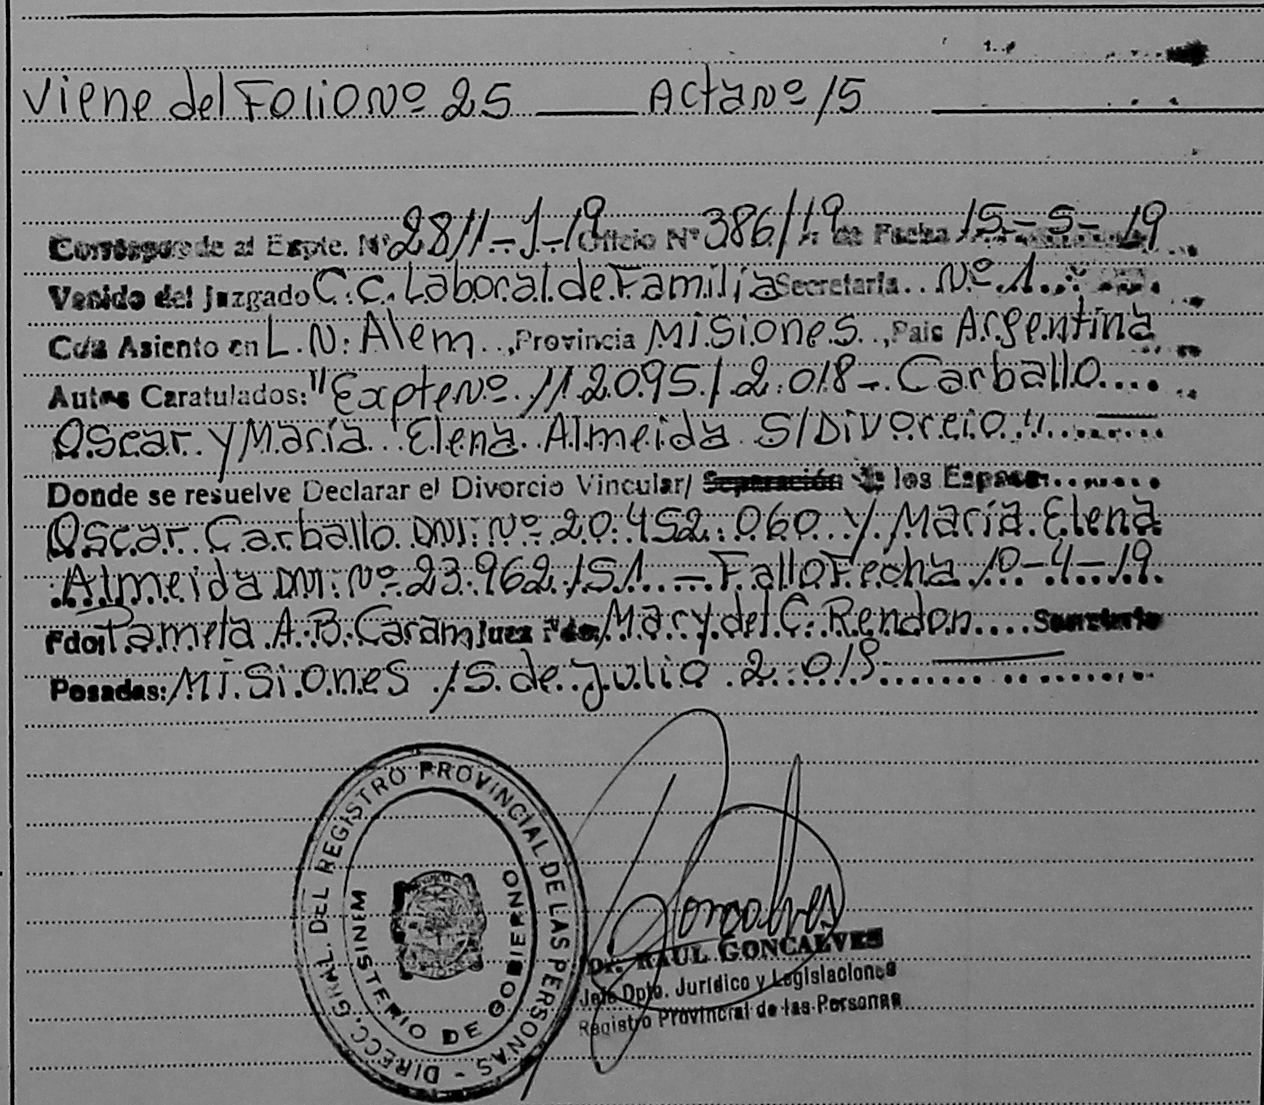 Viene del Folio Nº 25 Acta nº 15
Corresponde al Expte. Nº 2811-J-19 Oficio Nº 386/19 de Fecha 15-5-19
Venido del Juzgado C.C. Laboral de Familia Secretaria Nº 1
Con Asiento en L.N. Alem, Provincia Misiones, Pais Argentina
Autos Caratulados: "Expte Nº 112095/2.018 - Carballo
Oscar y María Elena Almeida S/Divorcio"
Donde se resuelve Declarar el Divorcio Vincular/ Separación de los Esposos
Oscar Carballo DNI. Nº 20.452.060 y María Elena
Almeida DNI. Nº 23.962.151 - Fallo Fecha 10-4-19.
Fdo: Pamela A.B. Caram Juez Fdo: Mary del C. Rendon Secretario
Posadas: Misiones 15 de Julio 2.019
DIRECC. GRAL. DEL REGISTRO PROVINCIAL DE LAS PERSONAS -
MINISTERIO DE GOBIERNO
Goncalves
Dr. RAUL GONCALVES
Jefe Dpto. Jurídico y Legislaciones
Registro Provincial de las Personas